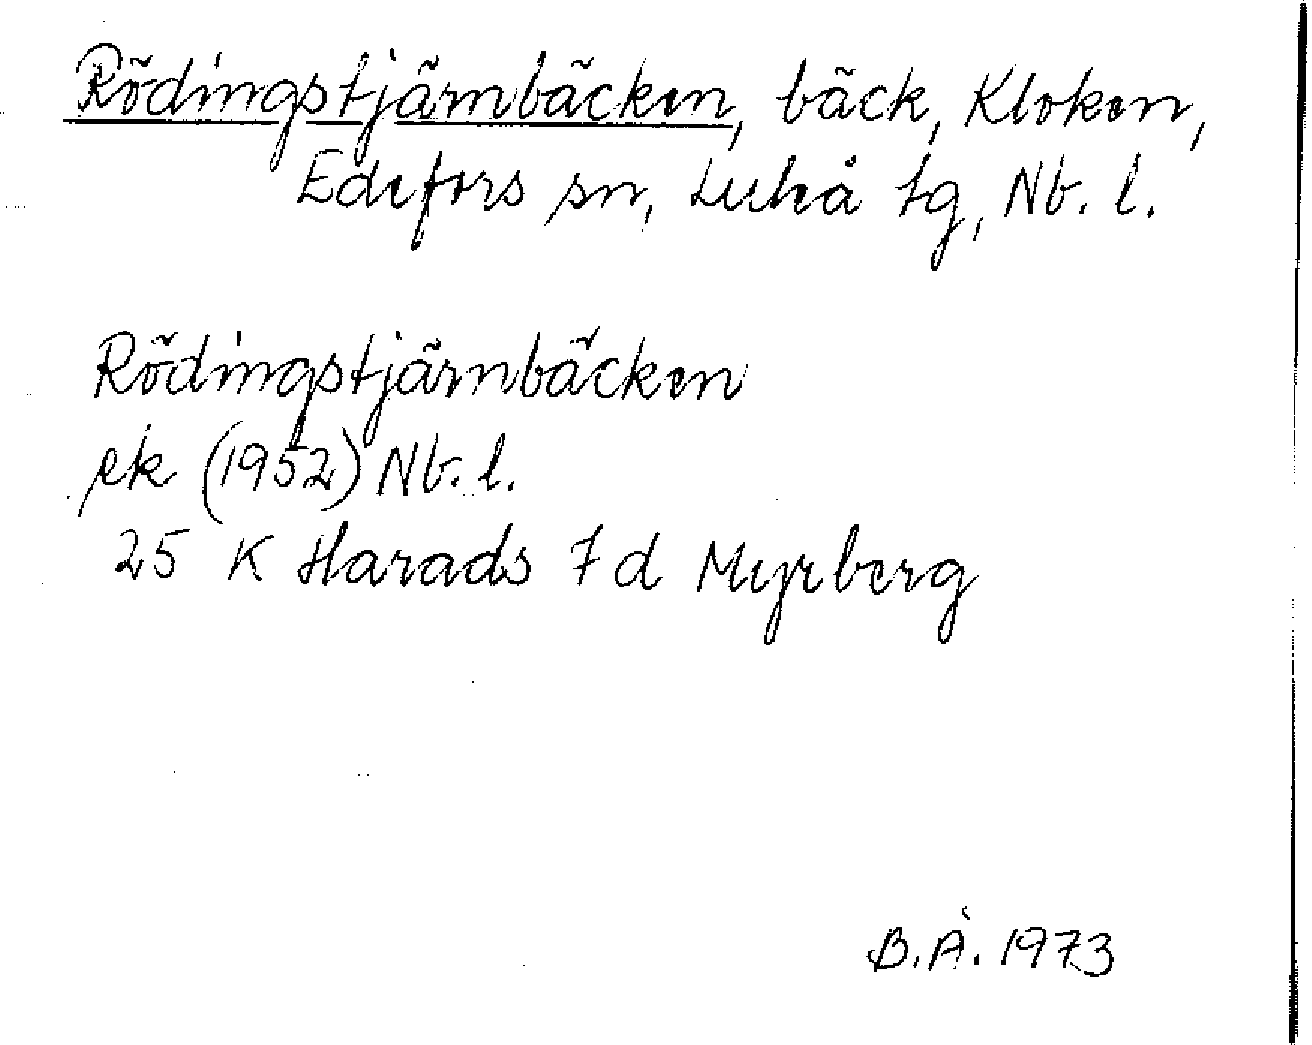 Rödingstjärnbäcken, bäck, Kloken,
Edefors sn, Luleå tg, Nb. l.
Rödingstjärnbäcken
ek (1952) Nb. l.
25 K Harads 7 d Myrberg
B.Å. 1973